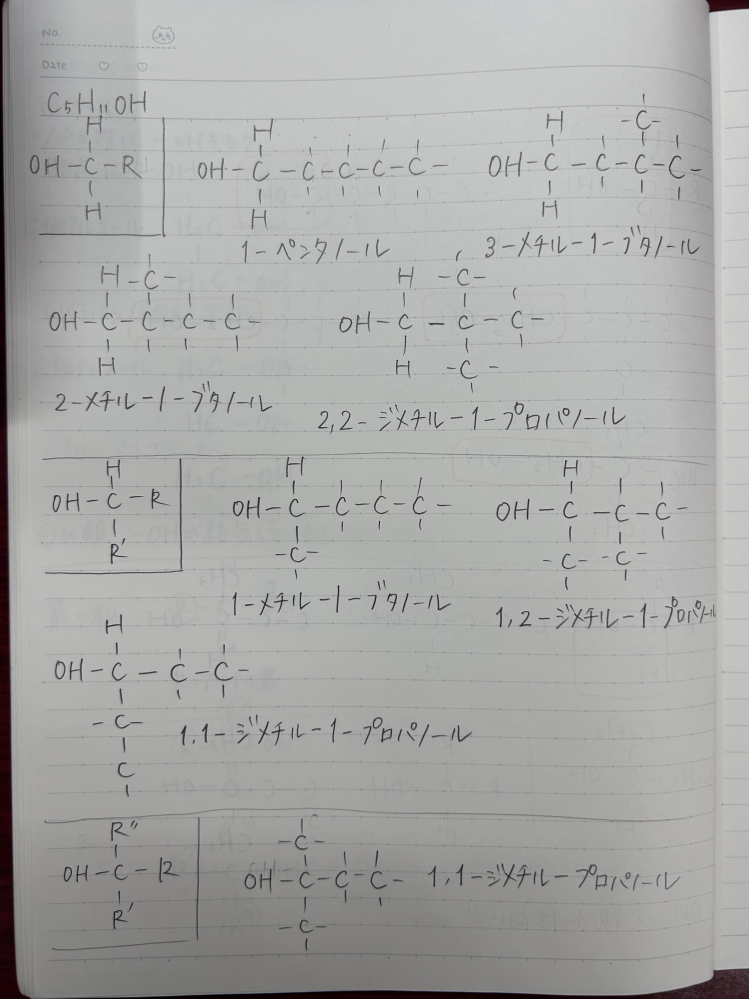 No.
Date
C5H11OH
H
OH-C-R
H
H
OH-C-C-C-C-C-
H
1-ペンタノール
-C-
H
OH-C-C-C-C-
H
3-メチル-1-ブタノール
H -C-
OH-C-C-C-C-
H
2-メチル-1-ブタノール
H -C-
OH-C-C-C-
H -C-
2,2-ジメチル-1-プロパノール
H
OH-C-R
R'
H
OH-C-C-C-C-
-C-
1-メチル-1-ブタノール
H
OH-C-C-C-
-C- -C-
1,2-ジメチル-1-プロパノール
H
OH-C-C-C-
-C-
C
1,1-ジメチル-1-プロパノール
R"
OH-C-R
R'
-C-
OH-C-C-C-
-C-
1,1-ジメチル-プロパノール